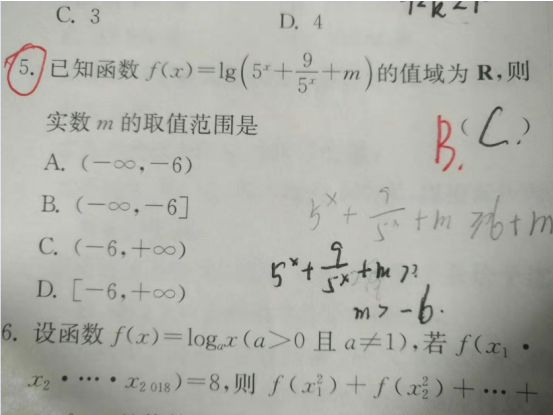 C. 3 D. 4
5. 已知函数 f(x)=lg(5ˣ+9/5ˣ+m)的值域为 R,则
实数 m 的取值范围是 ( C. )
B.
A. (-∞,-6)
B. (-∞,-6]
5ˣ+9/5ˣ+m ≥6+m
C. (-6,+∞)
5ˣ+9/5ˣ+m >?
D. [-6,+∞)
m>-6.
6. 设函数 f(x)=logₐx(a>0 且 a≠1),若 f(x₁·
x₂·…·x₂₀₁₈)=8,则 f(x₁²)+f(x₂²)+…+